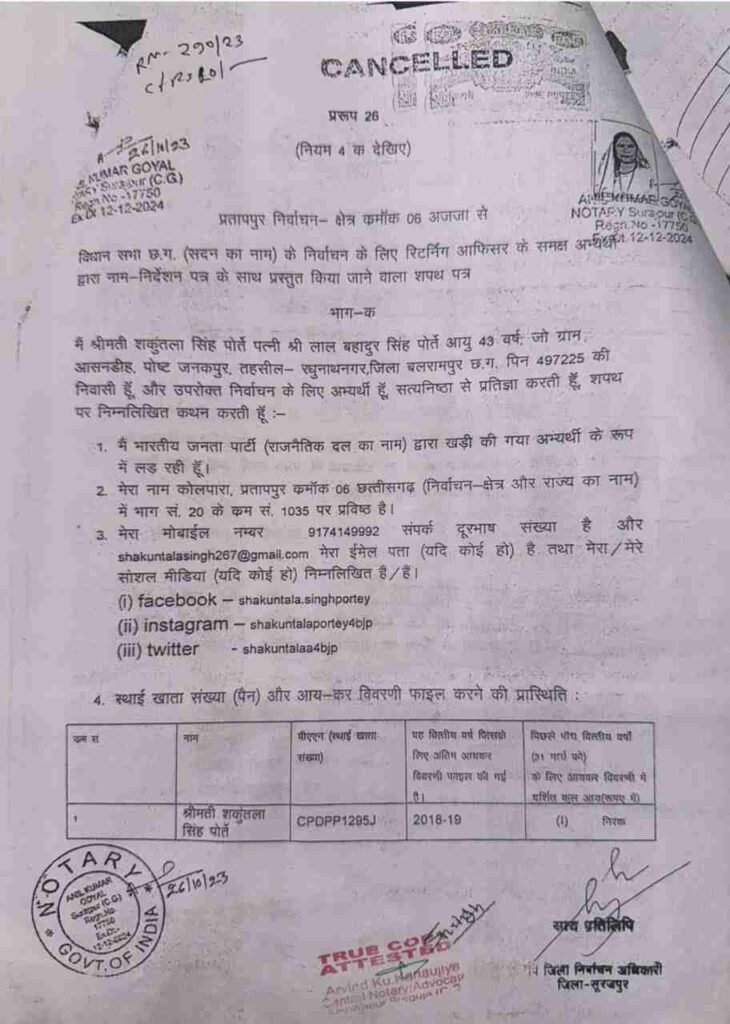 RM- 290/23
CANCELLED
INDIA
प्ररूप 26
(नियम 4 क देखिए)
26/10/23
KUMAR GOYAL
Surajpur (C.G.)
Regn.No -17750
Ex.Dt 12-12-2024
ANIL KUMAR GOYAL
NOTARY Surajpur (C.G
Regn.No -17750
12-12-2024
प्रतापपुर निर्वाचन– क्षेत्र कमॉक 06 अजजा से
विधान सभा छ.ग. (सदन का नाम) के निर्वाचन के लिए रिटर्निंग आफिसर के समक्ष अभ्यर्थी
द्वारा नाम–निर्देशन पत्र के साथ प्रस्तुत किया जाने वाला शपथ पत्र
भाग–क
मैं श्रीमती शकुंतला सिंह पोर्ते पत्नी श्री लाल बहादुर सिंह पोर्ते आयु 43 वर्ष, जो ग्राम,
आसनडीह, पोष्ट जनकपुर, तहसील– रघुनाथनगर,जिला बलरामपुर छ.ग. पिन 497225 की
निवासी हूँ, और उपरोक्त निर्वाचन के लिए अभ्यर्थी हूँ, सत्यनिष्ठा से प्रतिज्ञा करती हूँ, शपथ
पर निम्नलिखित कथन करती हूँ :–
1. मैं भारतीय जनता पार्टी (राजनैतिक दल का नाम) द्वारा खड़ी की गया अभ्यर्थी के रूप
में लड़ रही हूँ।
2. मेरा नाम कोलपारा, प्रतापपुर कमॉक 06 छत्तीसगढ़ (निर्वाचन–क्षेत्र और राज्य का नाम)
में भाग सं. 20 के कम सं. 1035 पर प्रविष्ठ है।
3. मेरा मोबाईल नम्बर 9174149992 संपर्क दूरभाष संख्या है और
shakuntalasingh267@gmail.com मेरा ईमेल पता (यदि कोई हो) है तथा मेरा/मेरे
सोशल मीडिया (यदि कोई हो) निम्नलिखित है/हैं।
(i) facebook – shakuntala.singhportey
(ii) instagram – shakuntalaportey4bjp
(iii) twitter - shakuntalaa4bjp
4. स्थाई खाता संख्या (पैन) और आय–कर विवरणी फाइल करने की प्रास्थिति :
कम सं नाम पीएएन (स्थाई खाता यह वित्तीय वर्ष जिसके पिछले पाँच वित्तीय वर्षों
संख्या) लिए अंतिम आयकर (31 मार्च को)
विवरणी फाइल की गई के लिए आयकर विवरणी में
है। दर्शित कुल आय(रूपए में)
1 श्रीमती शकुंतला CPDPP1295J 2018-19 (i) निरंक
सिंह पोर्ते
NOTARY
GOVT. OF INDIA
ANIL KUMAR
GOYAL
Surajpur (C.G.)
Regn.No.
17750
12-12-2024
26/10/23
TRUE COP
ATTESTED
Arvind Ku.Kanaujiya
Central Notary/Advocate
सत्य प्रतिलिपि
जिला निर्वाचन अधिकारी
जिला-सूरजपुर